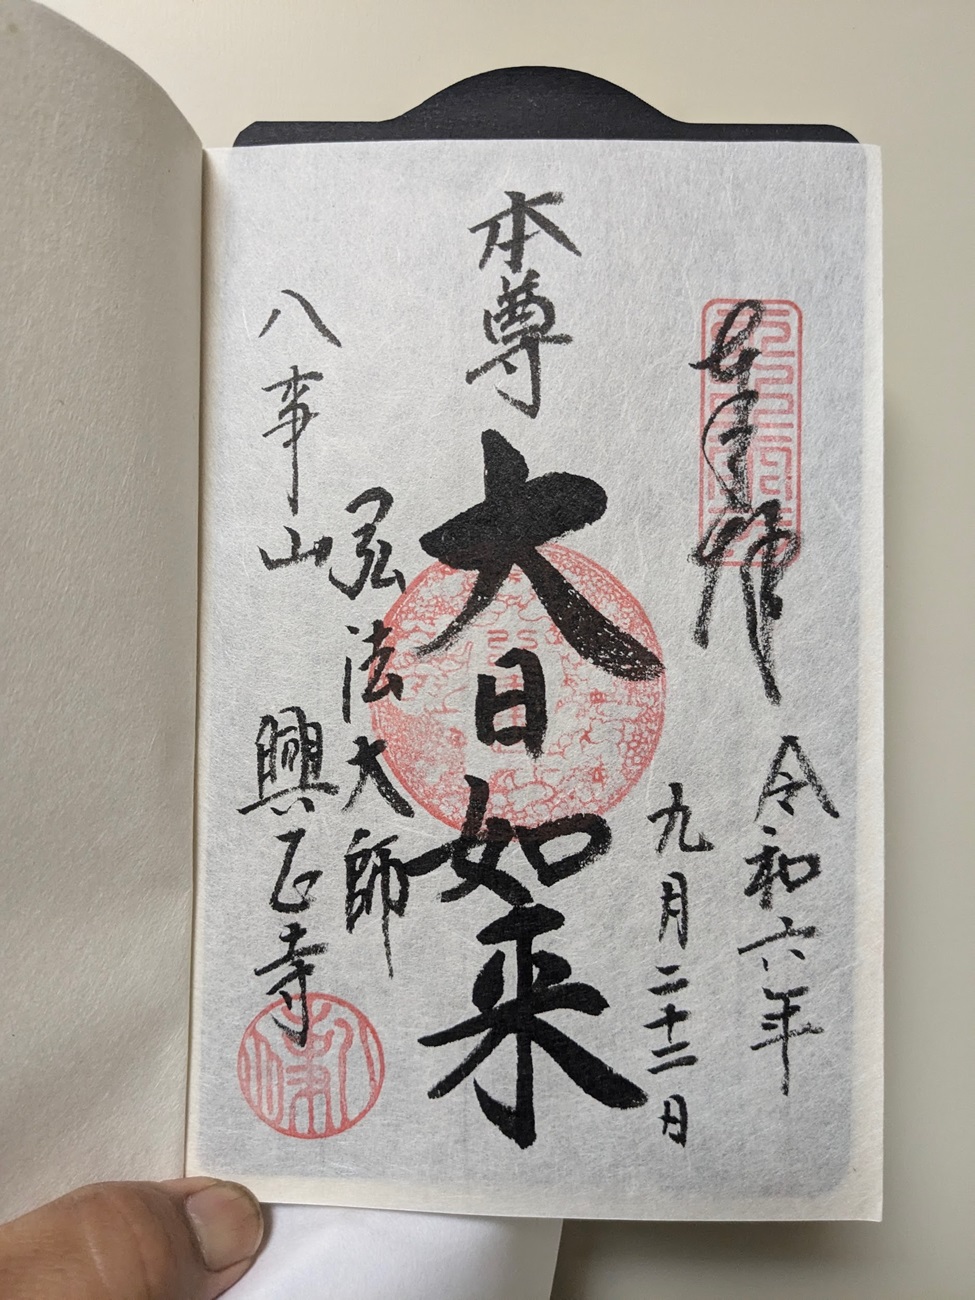 奉拝
令和六年
九月二十二日
本尊
大日如来
弘法大師
八事山
興正寺